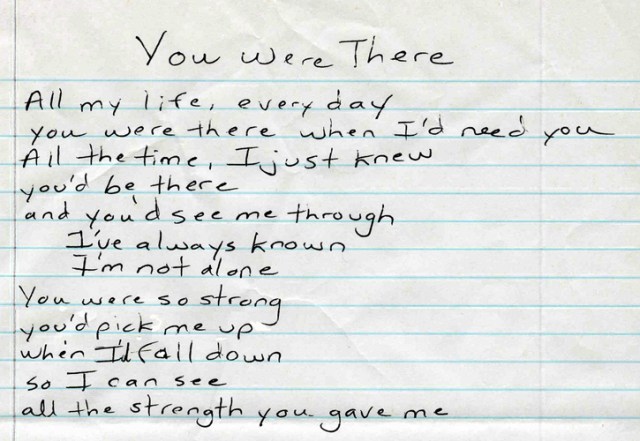 You Were There
All my life, every day
you were there when I'd need you
All the time, I just knew
you'd be there
and you'd see me through
I've always known
I'm not alone
You were so strong
you'd pick me up
when I'd fall down
so I can see
all the strength you gave me